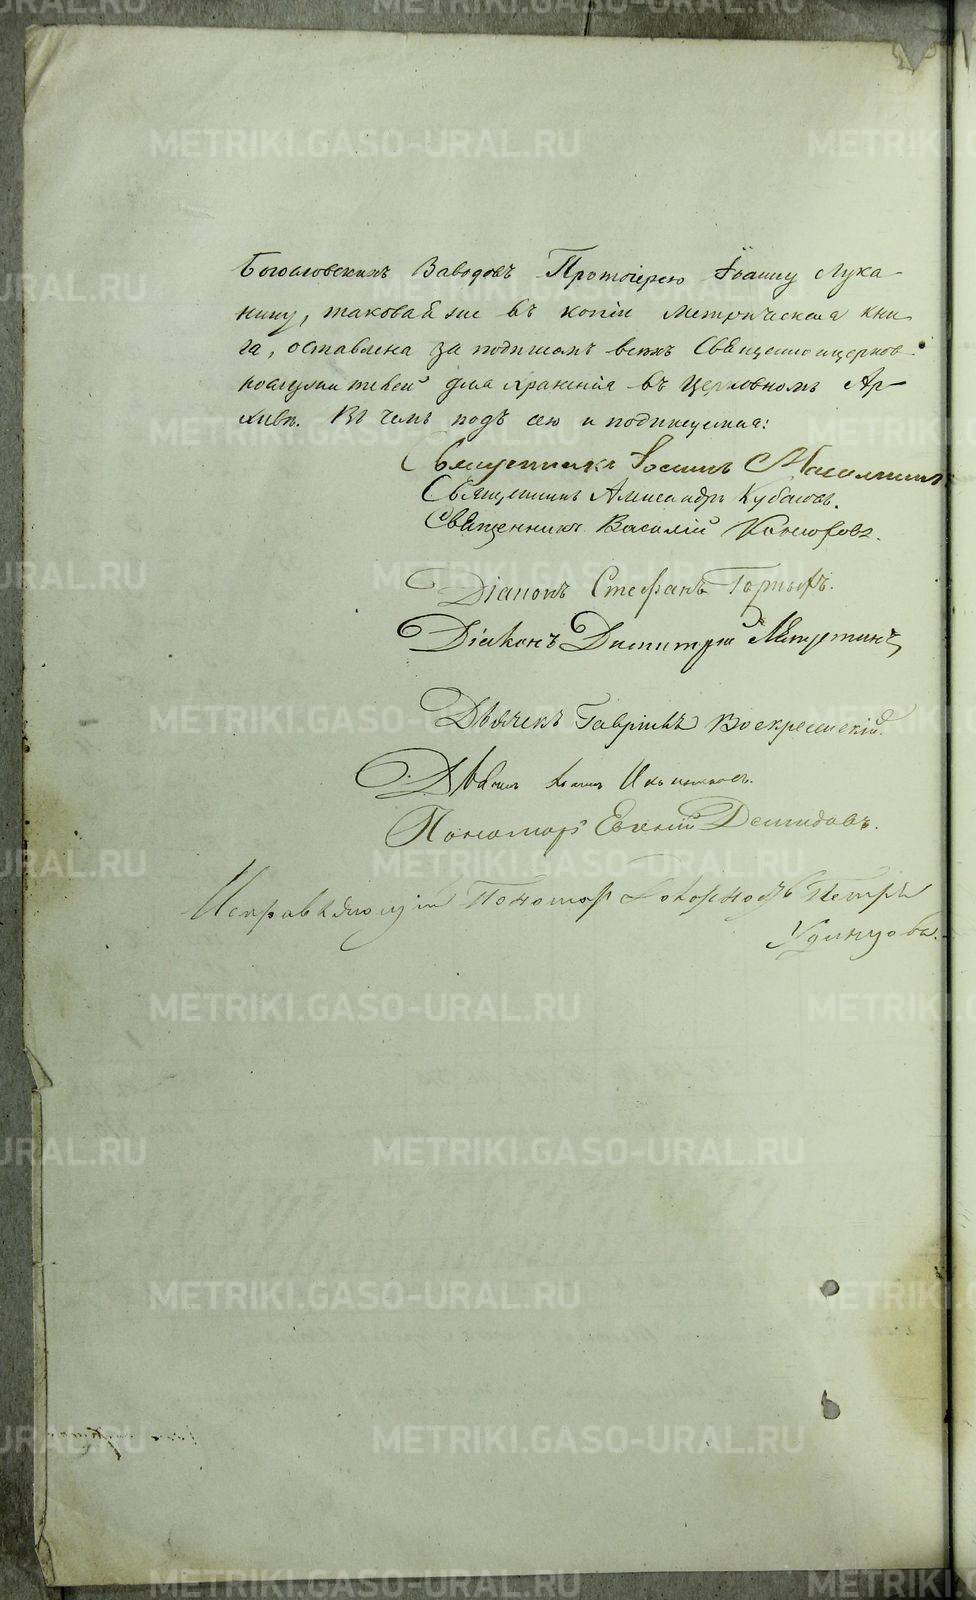 Богословскихъ Заводовъ Протоіерею Іоанну Лука-
нину, таковая же въ копіи метрическая кни-
га, оставлена за подписомъ всѣхъ Священноицерков-
нослужителей для храненія въ Церковномъ Ар-
хивѣ. Въ чемъ подъ сею и подписуемся:
Священникъ Іоаннъ
Священникъ Александръ Кубасовъ.
Священникъ Василій Конюховъ.
Діаконъ Стефанъ Горныхъ.
Діаконъ Димитрій
Дьячекъ Гавріилъ Воскресенскій.
Дьячекъ Іоаннъ
Пономарь Евгеній Демидовъ.
Исправляющій Пономар Петръ
Удинцовъ.
METRIKI.GASO-URAL.RU